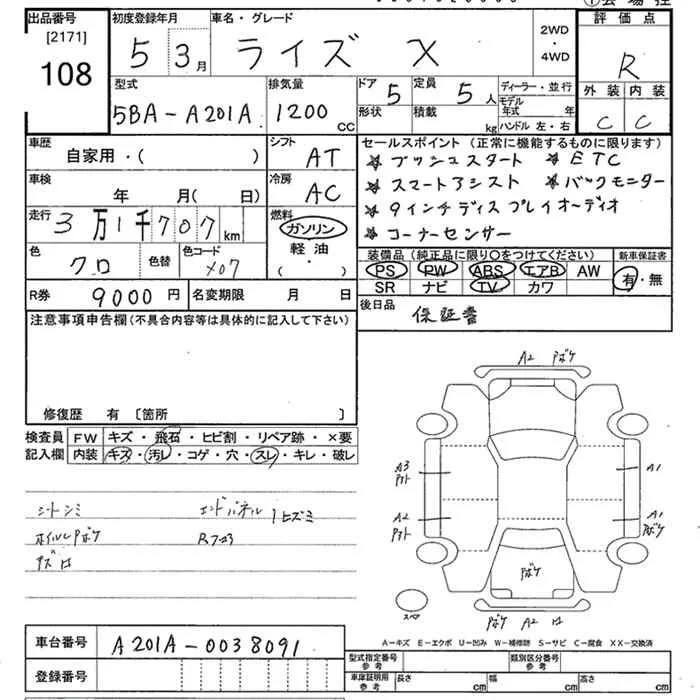 出品番号 [2171] 108
初度登録年月 5 3月
車名・グレード ライズ X
2WD・4WD
評価点 R
外装 C 内装 C
型式 5BA-A201A
排気量 1200 CC
ドア 5 定員 5人
形状 積載 kg
ディーラー・並行
モデル年式 年
ハンドル 左・右
車歴 自家用・( )
シフト AT
セールスポイント (正常に機能するものに限ります)
プッシュスタート ETC
スマートアシスト バックモニター
9インチディスプレイオーディオ
コーナーセンサー
車検 年 月( 日)
冷房 AC
走行 3万1千707km
燃料 ガソリン 軽油 ・( )
色 クロ 色替 色コード X07
装備品 (純正品に限り○をつけてください) 新車保証書
PS PW ABS エアB AW 有・無
SR ナビ TV カワ
R券 9000円 名変期限 月 日
後日品 保証書
注意事項申告欄(不具合内容等は具体的に記入して下さい)
修復歴 有 〔箇所 〕
検査員記入欄 FW キズ・飛石・ヒビ割・リペア跡・×要
内装 キズ・汚レ・コゲ・穴・スレ・キレ・破レ
シートシミ エンドパネル ヒズミ
A2
A3 A1
A2 A1
A2
スペア
A-キズ E-エクボ U-凹み W-補修跡 S-サビ C-腐食 XX-交換済
車台番号 A201A-0038091
登録番号
型式指定番号参考 類別区分番号参考
車庫証明用参考 長さ cm 幅 cm 高さ cm